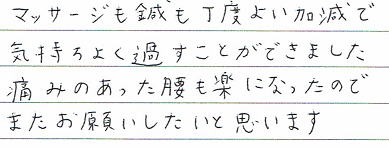 マッサージも鍼も丁度よい加減で
気持ちよく過すことができました
痛みのあった腰も楽になったので
またお願いしたいと思います